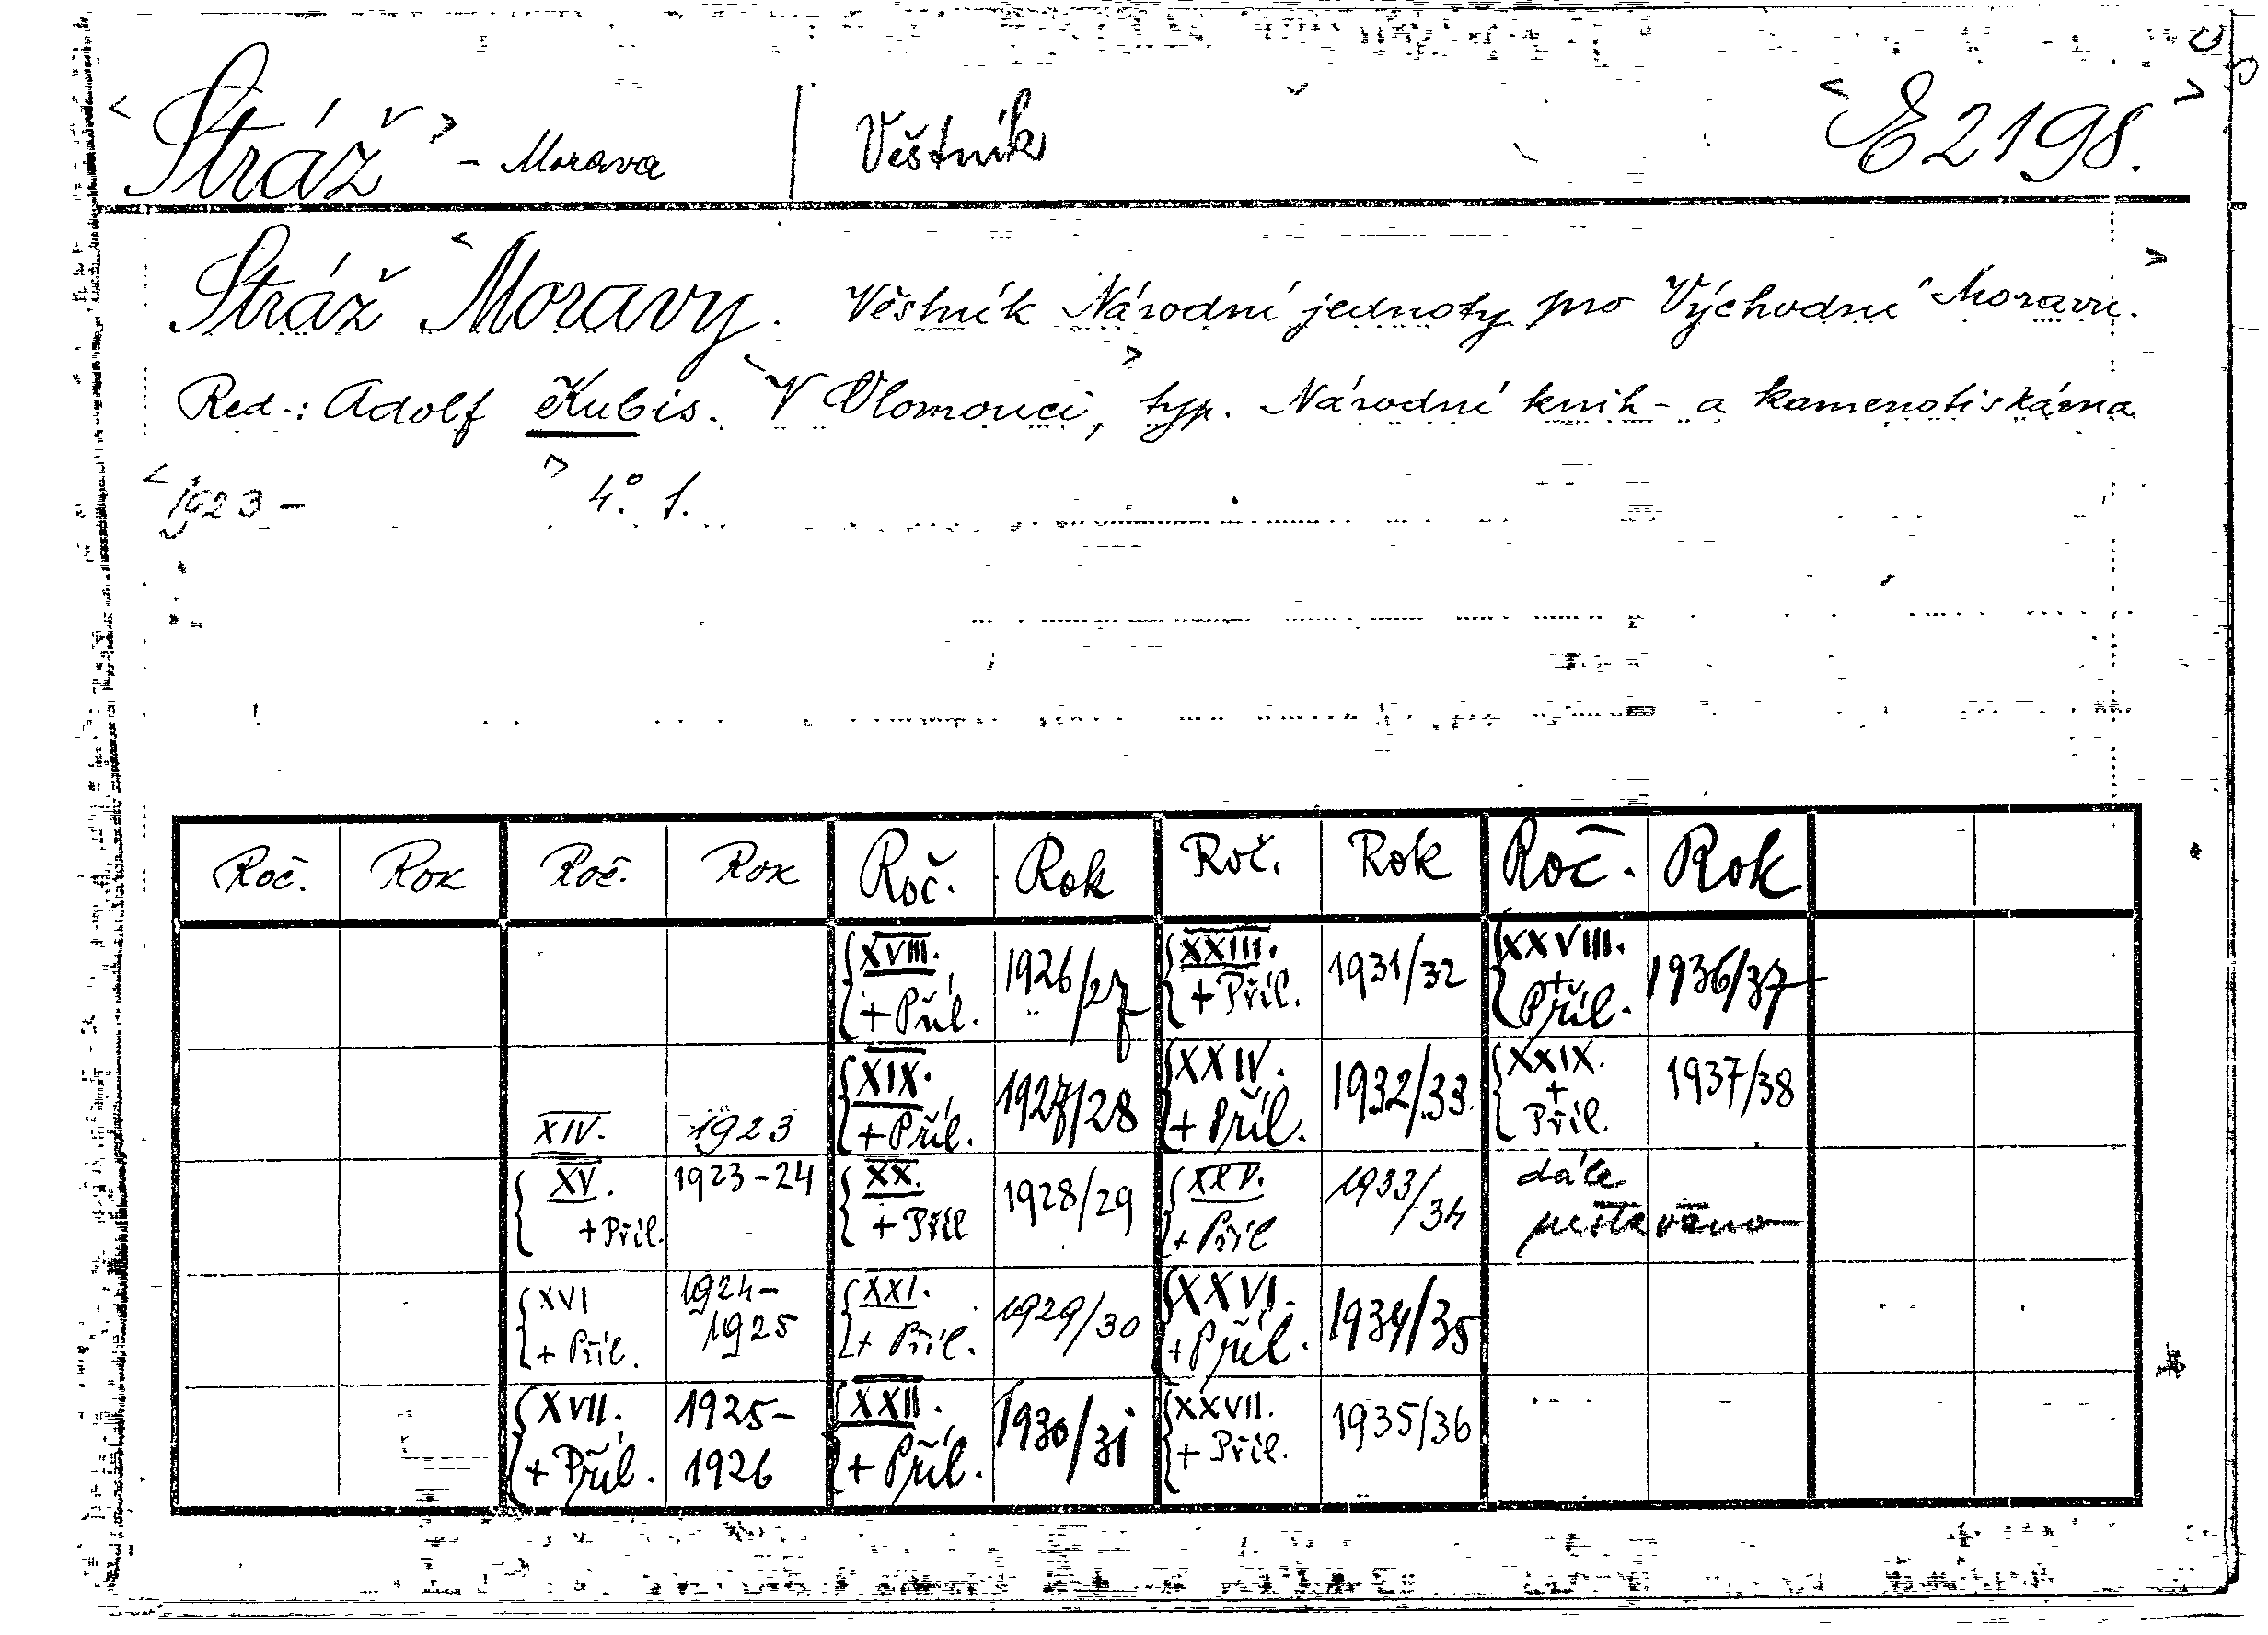 Stráž - Morava | Věstník E 2198.
Stráž Moravy. Věstník Národní jednoty pro Východní Moravu.
Red.: Adolf Kubis. V Olomouci, typ. Národní knih- a kamenotiskárna
1923 - 4°. f.
Roč. Rok Roč. Rok Roč. Rok Roč. Rok Roč. Rok
XVIII. + Příl. 1926/27 XXIII. + Příl. 1931/32 XXVIII. + Příl. 1936/37
XIV. 1923 XIX. + Příl. 1927/28 XXIV. + Příl. 1932/33 XXIX. + Příl. 1937/38
XV. + Příl. 1923-24 XX. + Příl 1928/29 XXV. + Příl 1933/34 dále
XVI + Příl. 1924-1925 XXI. + Příl. 1929/30 XXVI. + Příl. 1934/35
XVII. + Příl. 1925-1926 XXII. + Příl. 1930/31 XXVII. + Příl. 1935/36